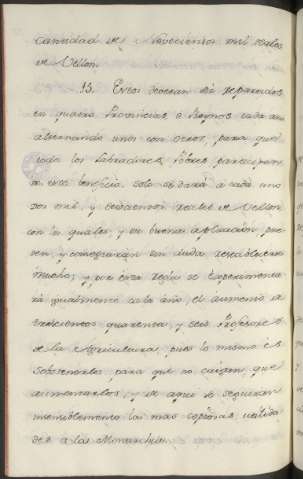 cantidad de Novecientos mil reales
de Vellon.
13. Estos deveran ser repartidos
en quatro Provincias o Reynos cada año
alternando unos con otros, para que
todos los Labradores Pobres participen
de este beneficio. solo se dará a cada uno
dos mil, y seiscientos reales de Vellon
con lo qual, y su buena aplicacion pue-
den, y conseguirán sin duda restablecerse
muchos, y por esta regla se experimenta
rá igualmente cada año, el aumento de
trescientos quarenta, y seis Profesores
de la Agricultura, pues lo mismo es
sobstenerlos, para que no caigan, que
aumentarlos, y de aqui se seguiran
insensiblemente las mas copiosas utilida
des a la Monarchia.